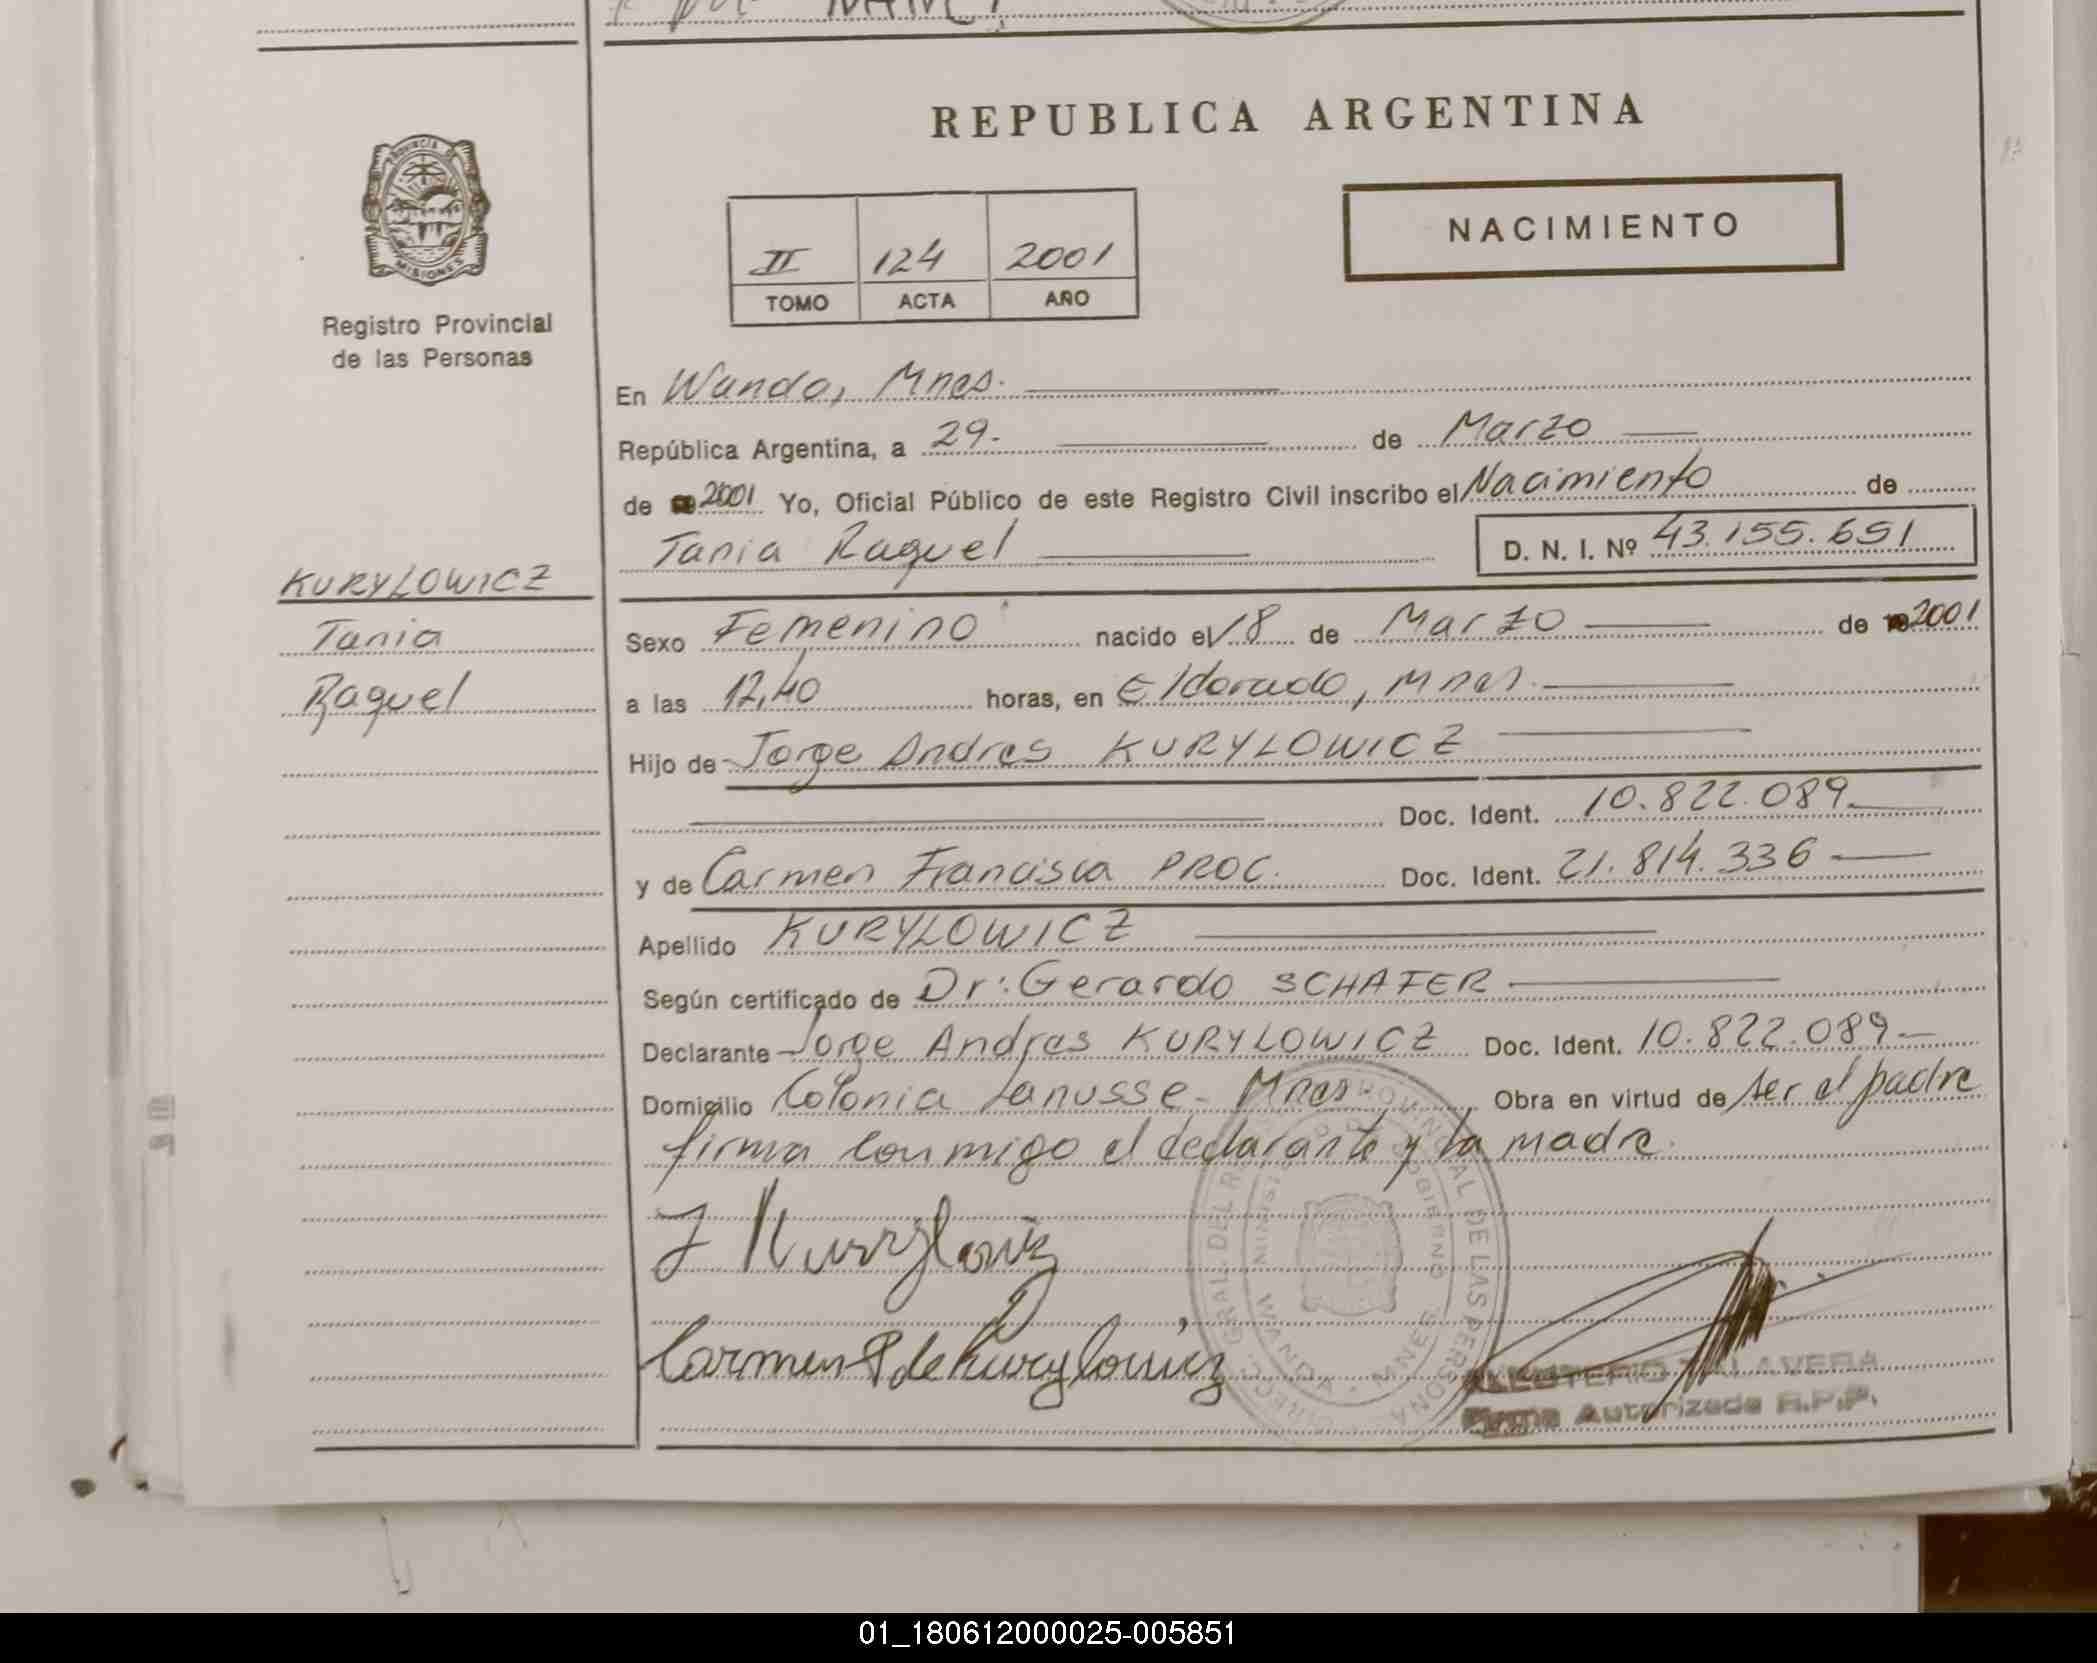 REPUBLICA ARGENTINA
PROVINCIA DE
MISIONES
Registro Provincial
de las Personas
NACIMIENTO
II 124 2001
TOMO ACTA AÑO
En Wanda, Mnes.
República Argentina, a 29. de Marzo
de 2001 Yo, Oficial Público de este Registro Civil inscribo el Nacimiento de
Tania Raquel D. N. I. Nº 43.155.651
KURYLOWICZ
Tania
Raquel
Sexo Femenino nacido el 18 de Marzo de 2001
a las 12,40 horas, en Eldorado, Mnes.
Hijo de Jorge Andres KURYLOWICZ
Doc. Ident. 10.822.089
y de Carmen Francisca PROC. Doc. Ident. 21.814.336
Apellido KURYLOWICZ
Según certificado de Dr: Gerardo SCHAFER
Declarante Jorge Andres KURYLOWICZ Doc. Ident. 10.822.089
Domicilio Colonia Lanusse - Mnes. Obra en virtud de ser el padre
firma conmigo el declarante y la madre.
J Kurylowicz
Carmen P de Kurylowicz
WANDA - MNES
TALAVERA
Firma Autorizada R.P.P.
01_180612000025-005851